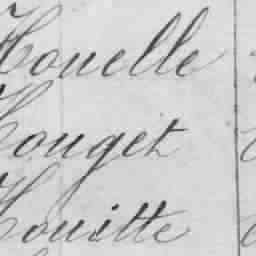 Houelle
Houget
Houitte